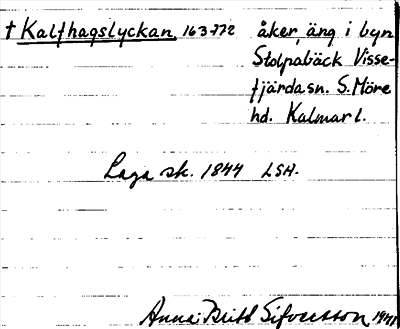 † Kalfhagslyckan, 163772 åker, äng i byn
Stolpabäck Visse-
fjärda sn. S. Möre
hd. Kalmar l.
Laga sk. 1844 LSA.
Anna-Britt 1941